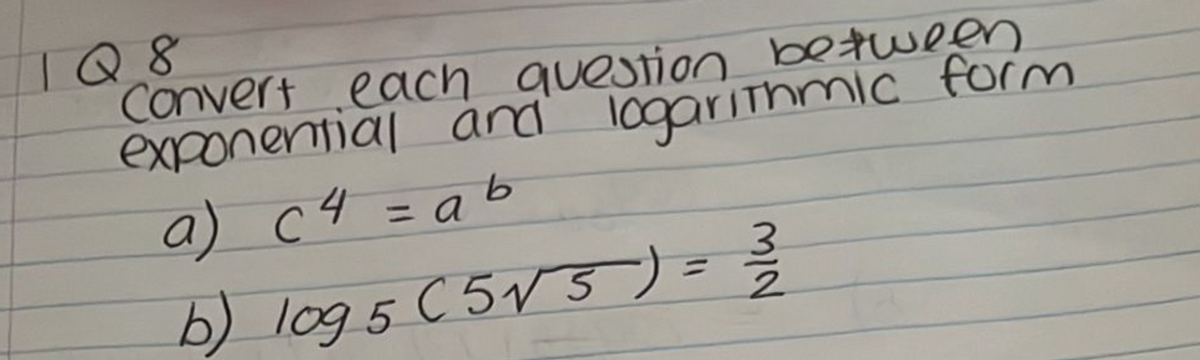 1 Q 8
convert each question between
exponential and logarithmic form
a) c⁴ = aᵇ
b) log 5 (5√5) = 3/2